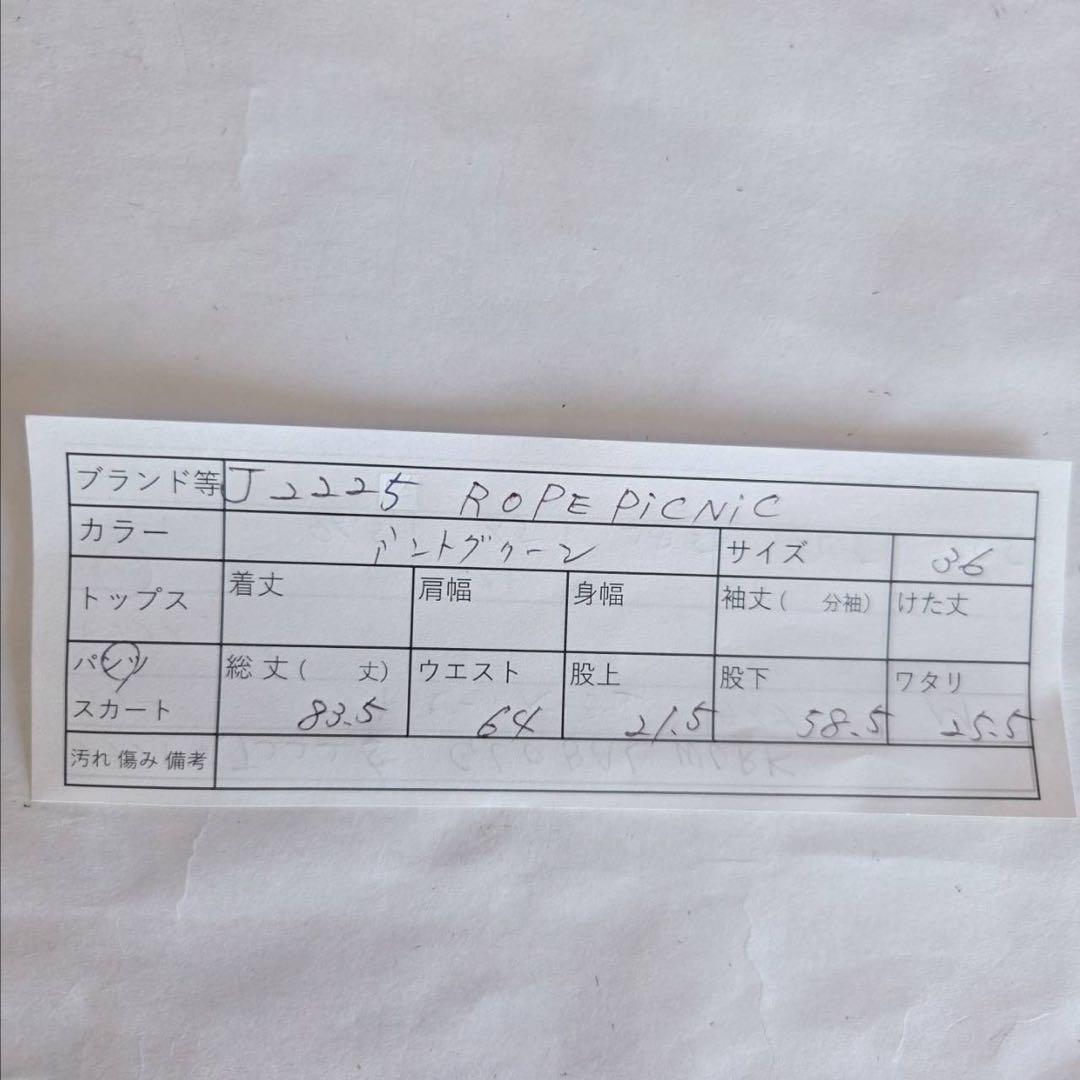 ブランド等 J2225 ROPE PiCNiC
カラー サイズ 36
トップス 着丈 肩幅 身幅 袖丈( 分袖) けた丈
パンツ 総丈( 丈) ウエスト 股上 股下 ワタリ
スカート 83.5 64 21.5 58.5 25.5
汚れ 傷み 備考